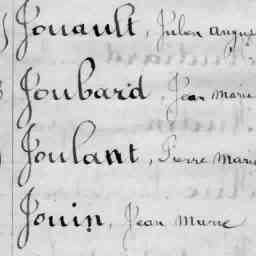 Jouault, Julien Augus
Joubard, Jean Marie
Joulant, Pierre Marie
Jouin, Jean Marie